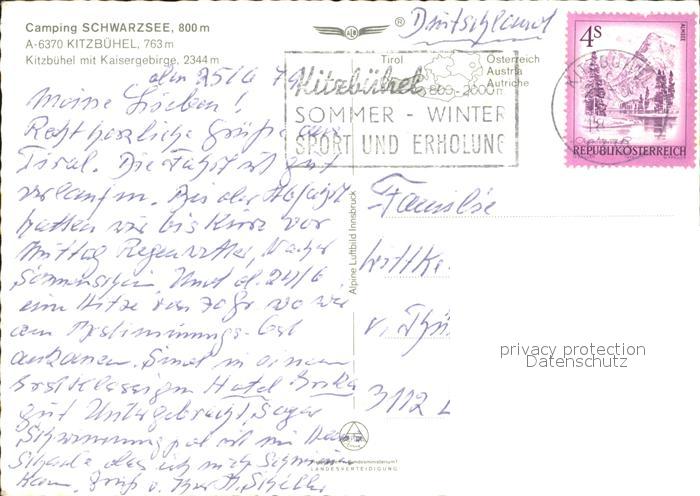 Camping SCHWARZSEE, 800 m
A-6370 KITZBÜHEL, 763 m
Kitzbühel mit Kaisergebirge, 2344 m
Deutschland
Tirol
Österreich
Austria
Autriche
Kitzbühel
800-2000m
SOMMER - WINTER
SPORT UND ERHOLUNG
4S
ALMSEE
REPUBLIK ÖSTERREICH
den 25/6 79
Meine Lieben!
Recht herzliche Grüße aus
Tirol. Die Fahrt ist gut
verlaufen. Bei der Abfahrt
hatten wir bis kurz vor
Mittag Regenwetter, nachher
Sonnenschein. Und d. 24/6
eine Hitze von 30 Gr wo wir
am Bestimmungs-Ort
ankamen. Sind in einem
erstklassigen Hotel
gut Untergebracht, sogar
Schwimming pol ist im Haus
Schade das ich nich Schwimmen
kann. Gruß v.
Alpine Luftbild Innsbruck
Familie
Wittke
v. Thü
3112
privacy protection
Datenschutz
LANDESVERTEIDIGUNG